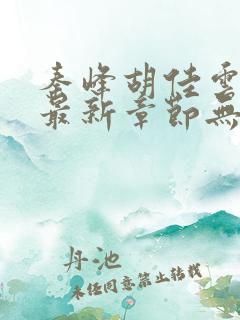 秦峰胡佳雲
最新章節無
丹池
未經同意禁止轉載